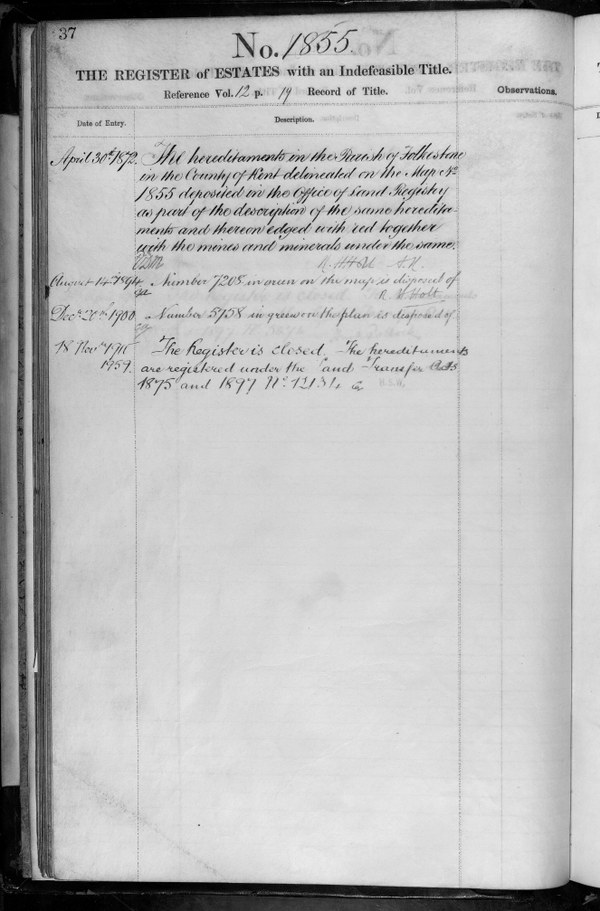 37
No. 1855.
THE REGISTER of ESTATES with an Indefeasible Title.
Reference Vol. 12 p. 19 Record of Title.
Observations.
Date of Entry.
Description.
April 30th 1872. The hereditaments in the Parish of Folkestone
in the County of Kent delineated on the Map No
1855 deposited in the Office of Land Registry
as part of the description of the same heredita-
ments and thereon edged with red together
with the mines and minerals under the same.
August 14th 1894 Number 7208 in on the map is disposed of
R. H. Holt
Decr 20th 1900 Number 5758 in green on the plan is disposed of
18 Novr 1910 The Register is closed. The hereditaments
1959. are registered under the Land Transfer Acts
1875 and 1897 No